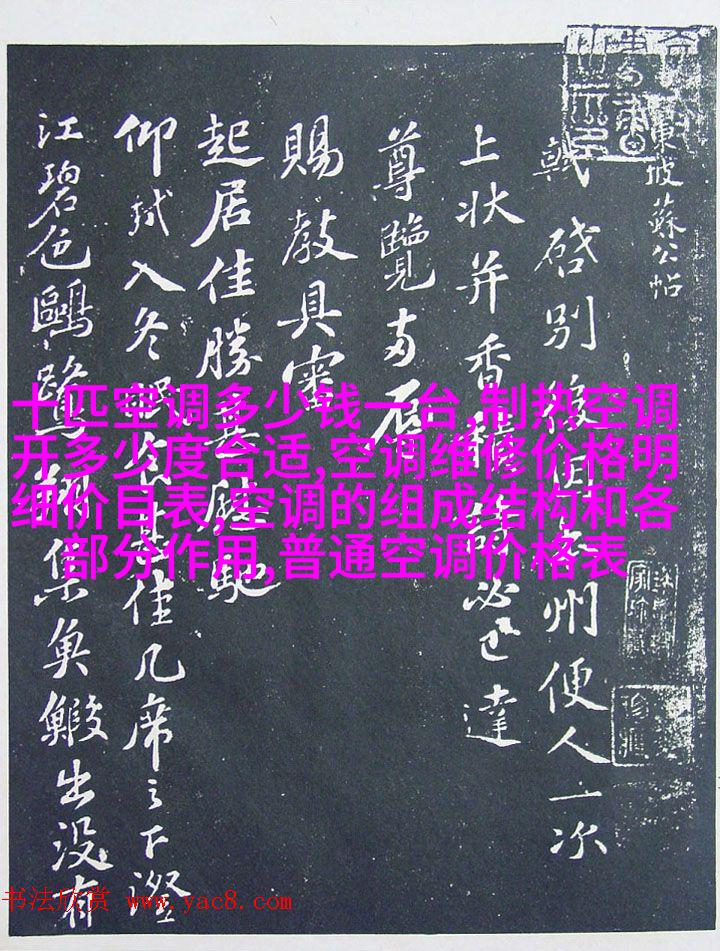 東坡蘇公帖
軾啓別後因州便人一次
上狀并香積詩必已達
尊覽辱
賜教具審
起居佳勝感慰馳
仰軾入冬眠食甚佳几席之下澄
江碧色鷗鷺翔集魚鰕出沒有
十匹空调多少钱一台,制热空调
开多少度合适,空调维修价格明
细价目表,空调的组成结构和各
部分作用,普通空调价格表
书法欣赏 www.yac8.com